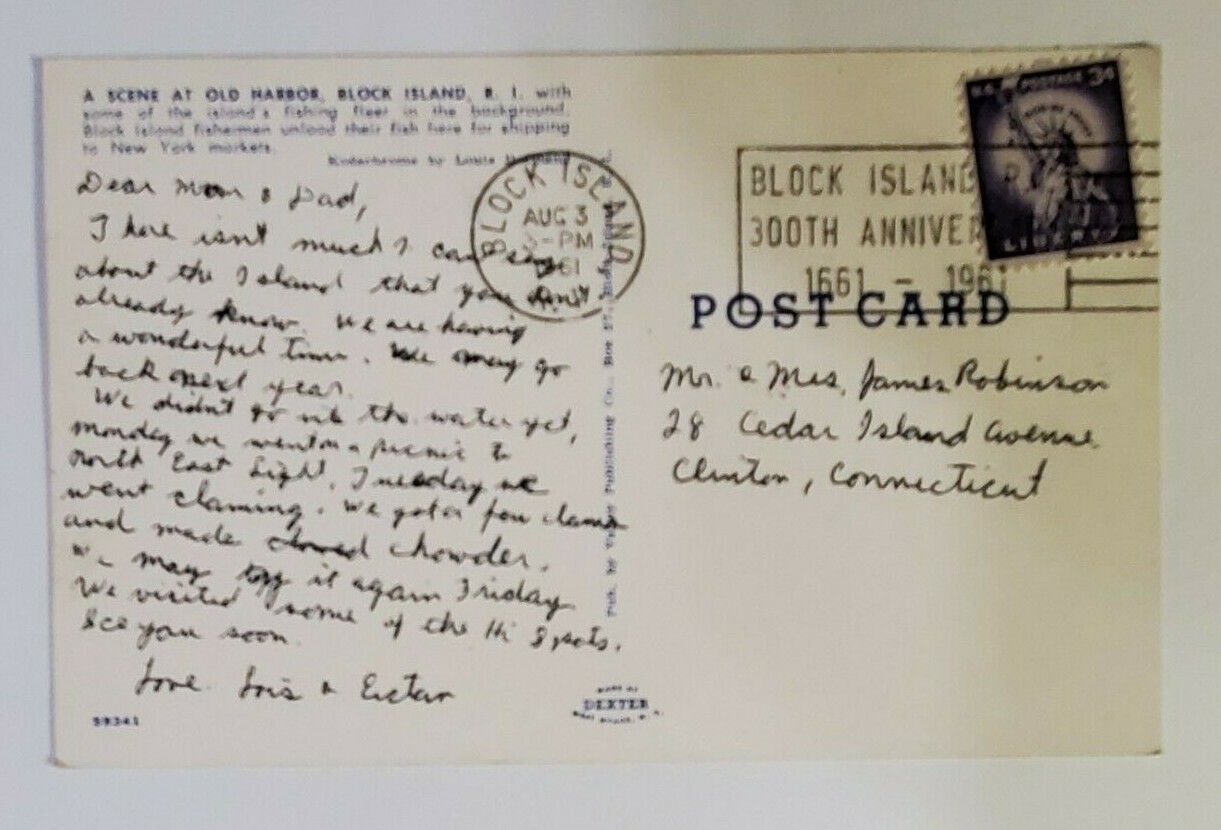 A SCENE AT OLD HARBOR, BLOCK ISLAND, R. I. with
some of the island's fishing fleet in the background.
Block Island fishermen unload their fish here for shipping
to New York markets.
Kodachrome by Louis
Dear Mom & Dad,
There isn't much I can say
about the Island that you don't
already know. We are having
a wonderful time. We may go
back next year.
We didn't go into the water yet,
Monday we went on a picnic to
North East Light, Tuesday we
went claming. We got a few clams
and made chowder.
We may try it again Friday.
We visited some of the Hi Spots.
See you soon.
Love. Lois &
59341
Pub. by Publishing Co., Box 57,
MADE BY
DEXTER
WEST NYACK, N. Y.
BLOCK ISLAND
AUG 3
-PM
1961
BLOCK ISLAND R
300TH ANNIVER
1661 - 1961
U.S. POSTAGE 3¢
IN GOD WE TRUST
LIBERTY
POST CARD
Mr. & Mrs. James Robinson
28 Cedar Island Avenue
Clinton, Connecticut